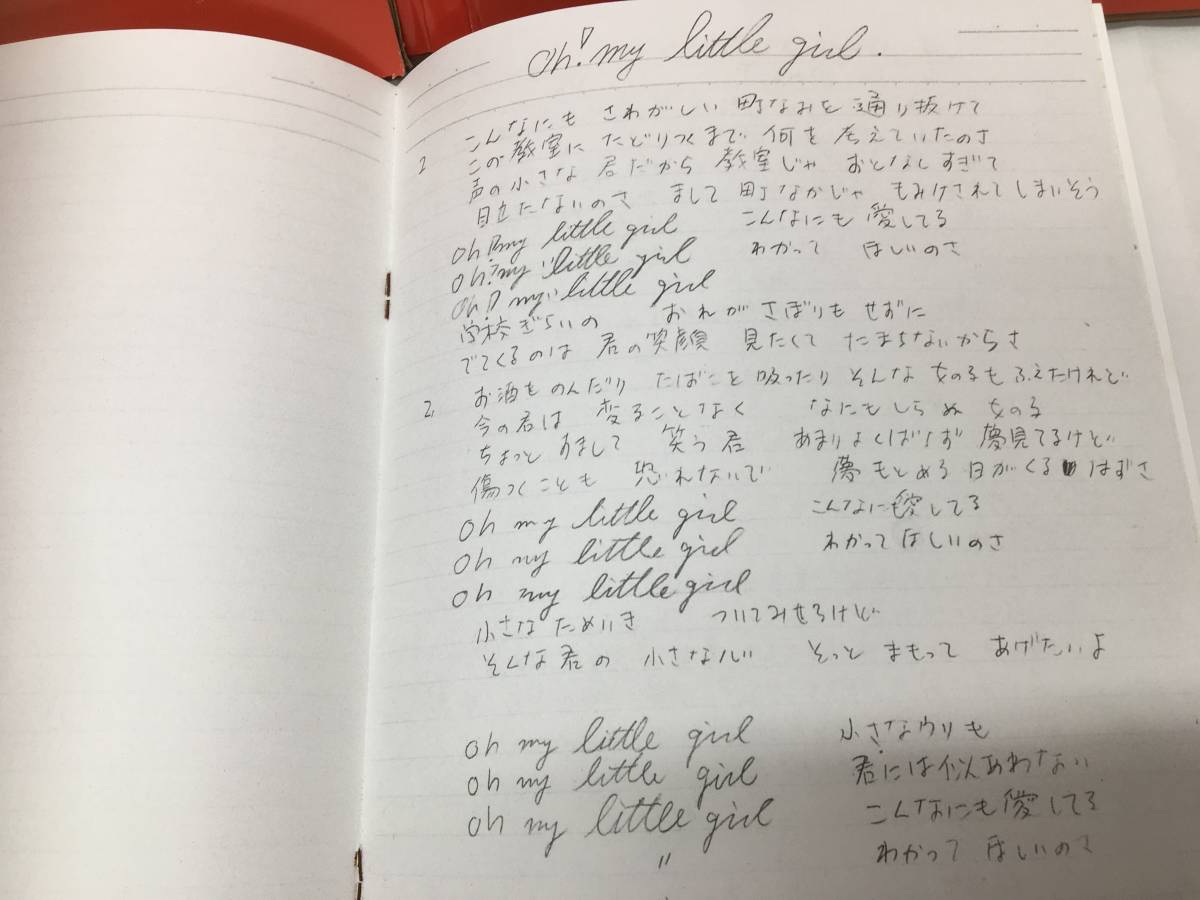 Oh! my little girl.
こんなにも さわがしい 町なみを 通り抜けて
1 この教室に たどりつくまで 何を 考えていたのさ
声の小さな 君だから 教室じゃ おとなしすぎて
目立たないのさ まして 町なかじゃ もみけされて しまいそう
Oh! my little girl こんなにも 愛してる
Oh! my little girl わかって ほしいのさ
Oh! my little girl
学校ぎらいの おれが さぼりも せずに
でてくるのは 君の笑顔 見たくて たまらないからさ
お酒を のんだり たばこを 吸ったり そんな 女の子も ふえたけれど
2, 今の君は 変ることなく なにもしらぬ 女の子
ちょっと すまして 笑う君 あまりよくばらず 夢見てるけど
傷つくことも 恐れないで 夢 もとめる 日がくる はずさ
Oh my little girl こんなにも愛してる
Oh my little girl わかって ほしいのさ
Oh my little girl
小さな ためいき ついてみせるけど
そんな君の 小さな心 そっと まもって あげたいよ
Oh my little girl 小さなウソも
Oh my little girl 君には似あわない
Oh my little girl こんなにも愛してる
〃 わかって ほしいのさ